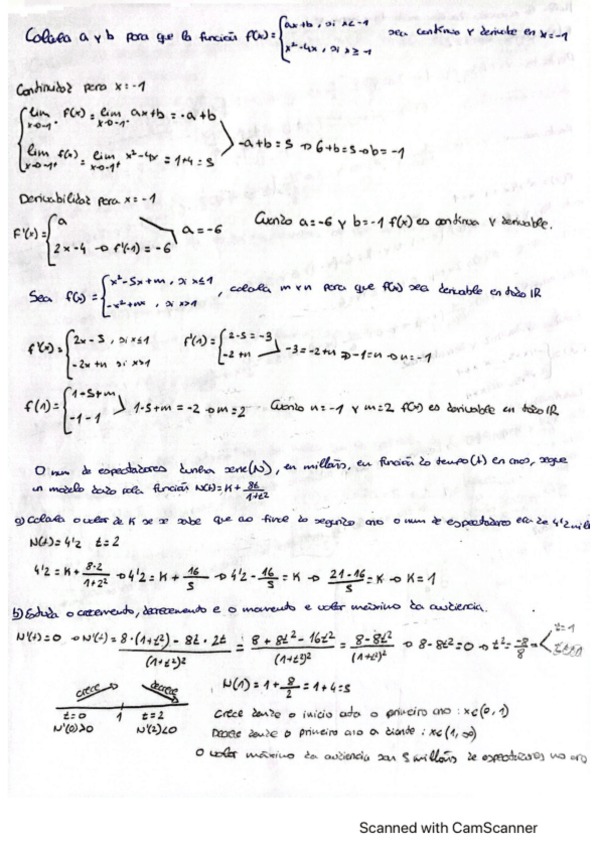 Calcula a y b para que la función f(x)={ax+b, si x<-1 sea continua y derivable en x=-1
x²-4x, si x≥-1
Continuidad para x=-1
lim x→-1⁻ f(x)=lim x→-1⁻ ax+b=-a+b
-a+b=5 → 6+b=5→b=-1
lim x→-1⁺ f(x)=lim x→-1⁺ x²-4x=1+4=5
Derivabilidad para x=-1
F'(x)={a
a=-6 Cuando a=-6 y b=-1 f(x) es continua y derivable.
2x-4 → f'(-1)=-6
Sea f(x)={x²-5x+m, si x≤1
-x²+nx, si x>1, calcula m y n para que f(x) sea derivable en todo IR
f'(x)={2x-5, si x≤1 f'(1)={2-5=-3
-2x+n si x>1 -2+n -3=-2+n → -1=n → n=-1
f(1)={1-5+m
-1-1 1-5+m=-2→m=2 Cuando n=-1 y m=2 f(x) es derivable en todo IR
O num de espectadores dunha serie(N), en millóns, en función do tempo(t) en anos, segue
un modelo dado pola función N(t)=K+8t/1+t²
a) Calcula o valor de K se se sabe que ao final do segundo ano o num de espectadores era de 4'2 mill
N(t)=4'2 t=2
4'2=K+8·2/1+2² →4'2=K+16/5 →4'2-16/5=K → 21-16/5=K → K=1
b) Estuda o crecemento, decrecemento e o momento e valor máximo da audiencia.
N'(t)=0 → N'(t)=8·(1+t²)-8t·2t/(1+t²)²=8+8t²-16t²/(1+t²)²=8-8t²/(1+t²)² → 8-8t²=0 → t²=-8/8= t=1
crece decrece N(1)=1+8/2=1+4=5
t=0 1 t=2 Crece dende o inicio ata o primeiro ano: x∈(0,1)
N'(0)>0 N'(2)<0 Decrece dende o primeiro ano a diante: x∈(1,∞)
O valor máximo da audiencia son 5 millóns de espectadores no ano
Scanned with CamScanner